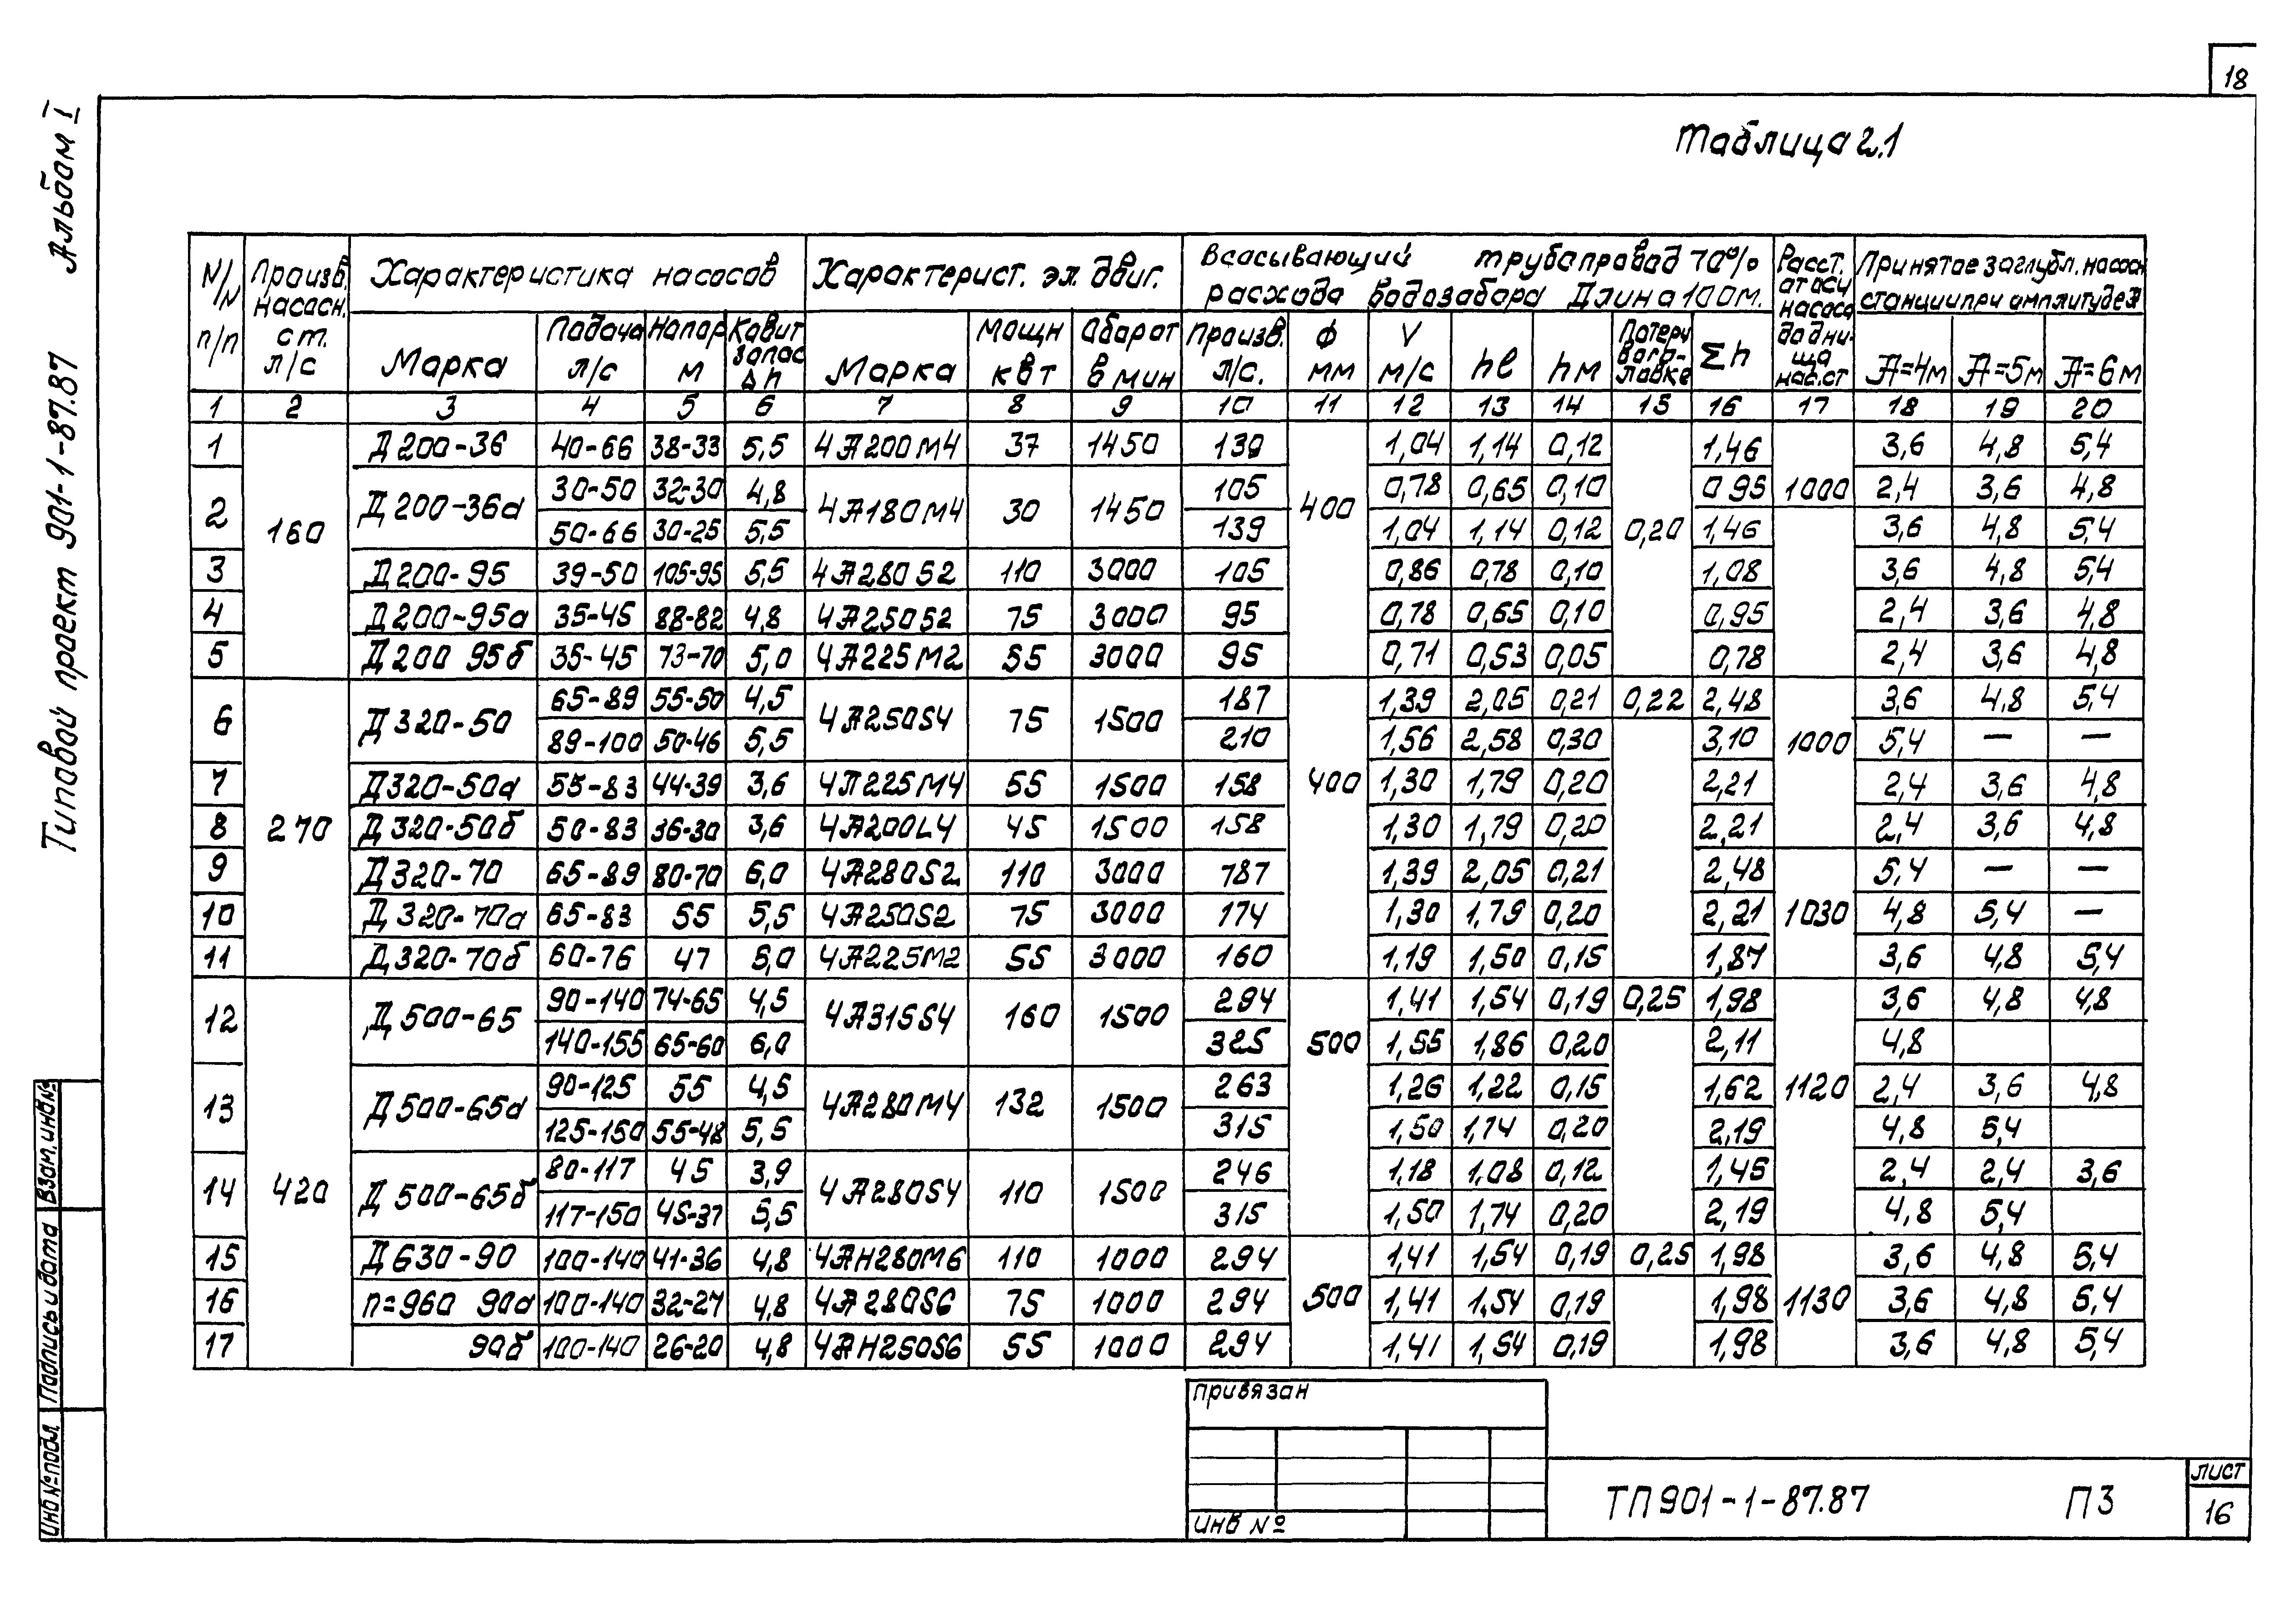 18
Альбом I
Типовой проект 901-1-87.87
Таблица 2.1
N/N п/п | Произв. насосн. ст. л/с | Характеристика насосов | Характерист. эл. двиг. | Всасывающий трубопровод 70% расхода водозабора Длина 100м. | Расст. от оси насоса до днища нас.ст | Принятое заглубл. насосн станции при амплитуде А
Марка | Подача л/с | Напор м | Кавит запас Δh | Марка | Мощн квт | Оборот в мин | Произв. л/с. | ф мм | V м/с | hℓ | hм | Потери в оголовке | Σh | А=4м | А=5м | А=6м
1 | 2 | 3 | 4 | 5 | 6 | 7 | 8 | 9 | 10 | 11 | 12 | 13 | 14 | 15 | 16 | 17 | 18 | 19 | 20
1 | 160 | Д200-36 | 40-66 | 38-33 | 5,5 | 4А200М4 | 37 | 1450 | 139 | 400 | 1,04 | 1,14 | 0,12 | 0,20 | 1,46 | 1000 | 3,6 | 4,8 | 5,4
2 | Д200-36а | 30-50 | 32-30 | 4,8 | 4А180М4 | 30 | 1450 | 105 | 0,78 | 0,65 | 0,10 | 0 95 | 2,4 | 3,6 | 4,8
50-66 | 30-25 | 5,5 | 139 | 1,04 | 1,14 | 0,12 | 1,46 | 3,6 | 4,8 | 5,4
3 | Д200-95 | 39-50 | 105-95 | 5,5 | 4А280S2 | 110 | 3000 | 105 | 0,86 | 0,78 | 0,10 | 1,08 | 3,6 | 4,8 | 5,4
4 | Д200-95а | 35-45 | 88-82 | 4,8 | 4А250S2 | 75 | 3000 | 95 | 0,78 | 0,65 | 0,10 | 0,95 | 2,4 | 3,6 | 4,8
5 | Д200 95б | 35-45 | 73-70 | 5,0 | 4А225М2 | 55 | 3000 | 95 | 0,71 | 0,53 | 0,05 | 0,78 | 2,4 | 3,6 | 4,8
6 | 270 | Д320-50 | 65-89 | 55-50 | 4,5 | 4А250S4 | 75 | 1500 | 187 | 400 | 1,39 | 2,05 | 0,21 | 0,22 | 2,48 | 1000 | 3,6 | 4,8 | 5,4
89-100 | 50-46 | 5,5 | 210 | 1,56 | 2,58 | 0,30 | 3,10 | 5,4 | — | —
7 | Д320-50а | 55-83 | 44-39 | 3,6 | 4П225М4 | 55 | 1500 | 158 | 1,30 | 1,79 | 0,20 | 2,21 | 2,4 | 3,6 | 4,8
8 | Д320-50б | 50-83 | 36-30 | 3,6 | 4А200L4 | 45 | 1500 | 158 | 1,30 | 1,79 | 0,20 | 2,21 | 2,4 | 3,6 | 4,8
9 | Д320-70 | 65-89 | 80-70 | 6,0 | 4А280S2 | 110 | 3000 | 787 | 1,39 | 2,05 | 0,21 | 2,48 | 1030 | 5,4 | — | —
10 | Д320-70а | 65-83 | 55 | 5,5 | 4А250S2 | 75 | 3000 | 174 | 1,30 | 1,79 | 0,20 | 2,21 | 4,8 | 5,4 | —
11 | Д320-70б | 60-76 | 47 | 5,0 | 4А225М2 | 55 | 3000 | 160 | 1,19 | 1,50 | 0,15 | 1,87 | 3,6 | 4,8 | 5,4
12 | 420 | Д500-65 | 90-140 | 74-65 | 4,5 | 4А315S4 | 160 | 1500 | 294 | 500 | 1,41 | 1,54 | 0,19 | 0,25 | 1,98 | 1120 | 3,6 | 4,8 | 4,8
140-155 | 65-60 | 6,0 | 325 | 1,55 | 1,86 | 0,20 | 2,11 | 4,8
13 | Д500-65а | 90-125 | 55 | 4,5 | 4А280М4 | 132 | 1500 | 263 | 1,26 | 1,22 | 0,15 | 1,62 | 2,4 | 3,6 | 4,8
125-150 | 55-48 | 5,5 | 315 | 1,50 | 1,74 | 0,20 | 2,19 | 4,8 | 5,4
14 | Д500-65б | 80-117 | 45 | 3,9 | 4А280S4 | 110 | 1500 | 246 | 1,18 | 1,08 | 0,12 | 1,45 | 2,4 | 2,4 | 3,6
117-150 | 45-37 | 5,5 | 315 | 1,50 | 1,74 | 0,20 | 2,19 | 4,8 | 5,4
15 | Д630-90 | 100-140 | 41-36 | 4,8 | 4АН280М6 | 110 | 1000 | 294 | 500 | 1,41 | 1,54 | 0,19 | 0,25 | 1,98 | 1130 | 3,6 | 4,8 | 5,4
16 | п=960 90а | 100-140 | 32-27 | 4,8 | 4А280S6 | 75 | 1000 | 294 | 1,41 | 1,54 | 0,19 | 1,98 | 3,6 | 4,8 | 5,4
17 | 90б | 100-140 | 26-20 | 4,8 | 4АН250S6 | 55 | 1000 | 294 | 1,41 | 1,54 | 0,19 | 1,98 | 3,6 | 4,8 | 5,4
Привязан
ИНВ №
ТП 901-1-87.87 ПЗ
Лист
16
Взам. инв №
Подпись и дата
Инв № подл.